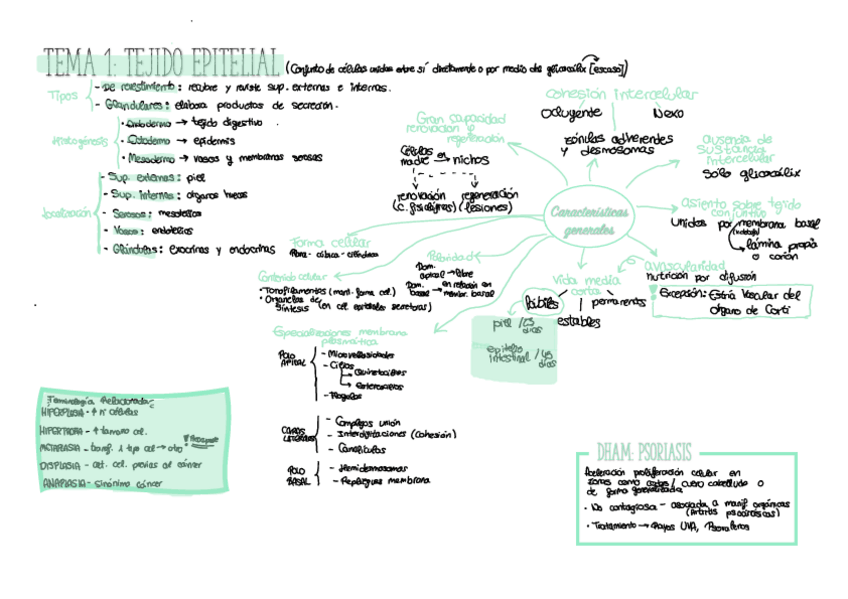 TEMA 1: TEJIDO EPITELIAL (Conjunto de células unidas entre sí directamente o por medio del glicocálix [escaso])
Tipos
- De revestimiento: recubre y reviste sup. externas e internas.
- Glandulares: elabora productos de secreción.
Histogénesis
· Endodermo → tejido digestivo
· Ectodermo → epidermis
· Mesodermo → vasos y membranas serosas
Localización
- Sup. externas: piel
- Sup. internas: órganos huecos
- Serosas: mesotelios
- Vasos: endotelios
- Glándulas: exocrinas y endocrinas
Características
generales
Gran capacidad
renovación y
regeneración
Células
madre en → nichos
renovación
regeneración
(lesiones)
cohesión intercelular
Ocluyente
Nexo
zónulas adherentes
y desmosomas
ausencia de
sustancia
intercelular
Sólo glicocálix
Asiento sobre tejido
conjuntivo
Unidas por membrana basal
lámina propia
o corion
avascularidad
nutrición por difusión
Excepción: Estría Vascular del
Órgano de Corti
vida media
corta
lábiles
estables
permanentes
piel / 25
días
epitelio
intestinal / 45
días
Polaridad
Dom.
apical → libre
Dom.
basal → en relación con
membr. basal
Forma celular
Plana - cúbica - cilíndrica
Contenido celular
· Tonofilamentos (mant. forma cel.)
· Organelas de
síntesis (en cel epiteliales secretoras)
Especializaciones membrana
plasmática
POLO
APICAL
- Microvellosidades
- Cilios
→ Quinetocilios
→ Estereocilios
CARAS
LATERALES
- Complejos unión
- Interdigitaciones (cohesión)
- Canalículos
POLO
BASAL
- Hemidesmosomas
- Repliegues membrana
Terminología Relacionada:
HIPERPLASIA - ↑ nº células
HIPERTROFIA - ↑ tamaño cel.
METAPLASIA - transf. 1 tipo cel → otro
DISPLASIA - alt. cel. previas al cáncer
ANAPLASIA - sinónimo cáncer
DHAM: PSORIASIS
Aceleración proliferación celular en
zonas como codos / cuero cabelludo o
de forma generalizada
· No contagiosa - asociada a manif. orgánicas
(Artritis psoriásicas)
· Tratamiento → Rayos UVA, Psoralenos